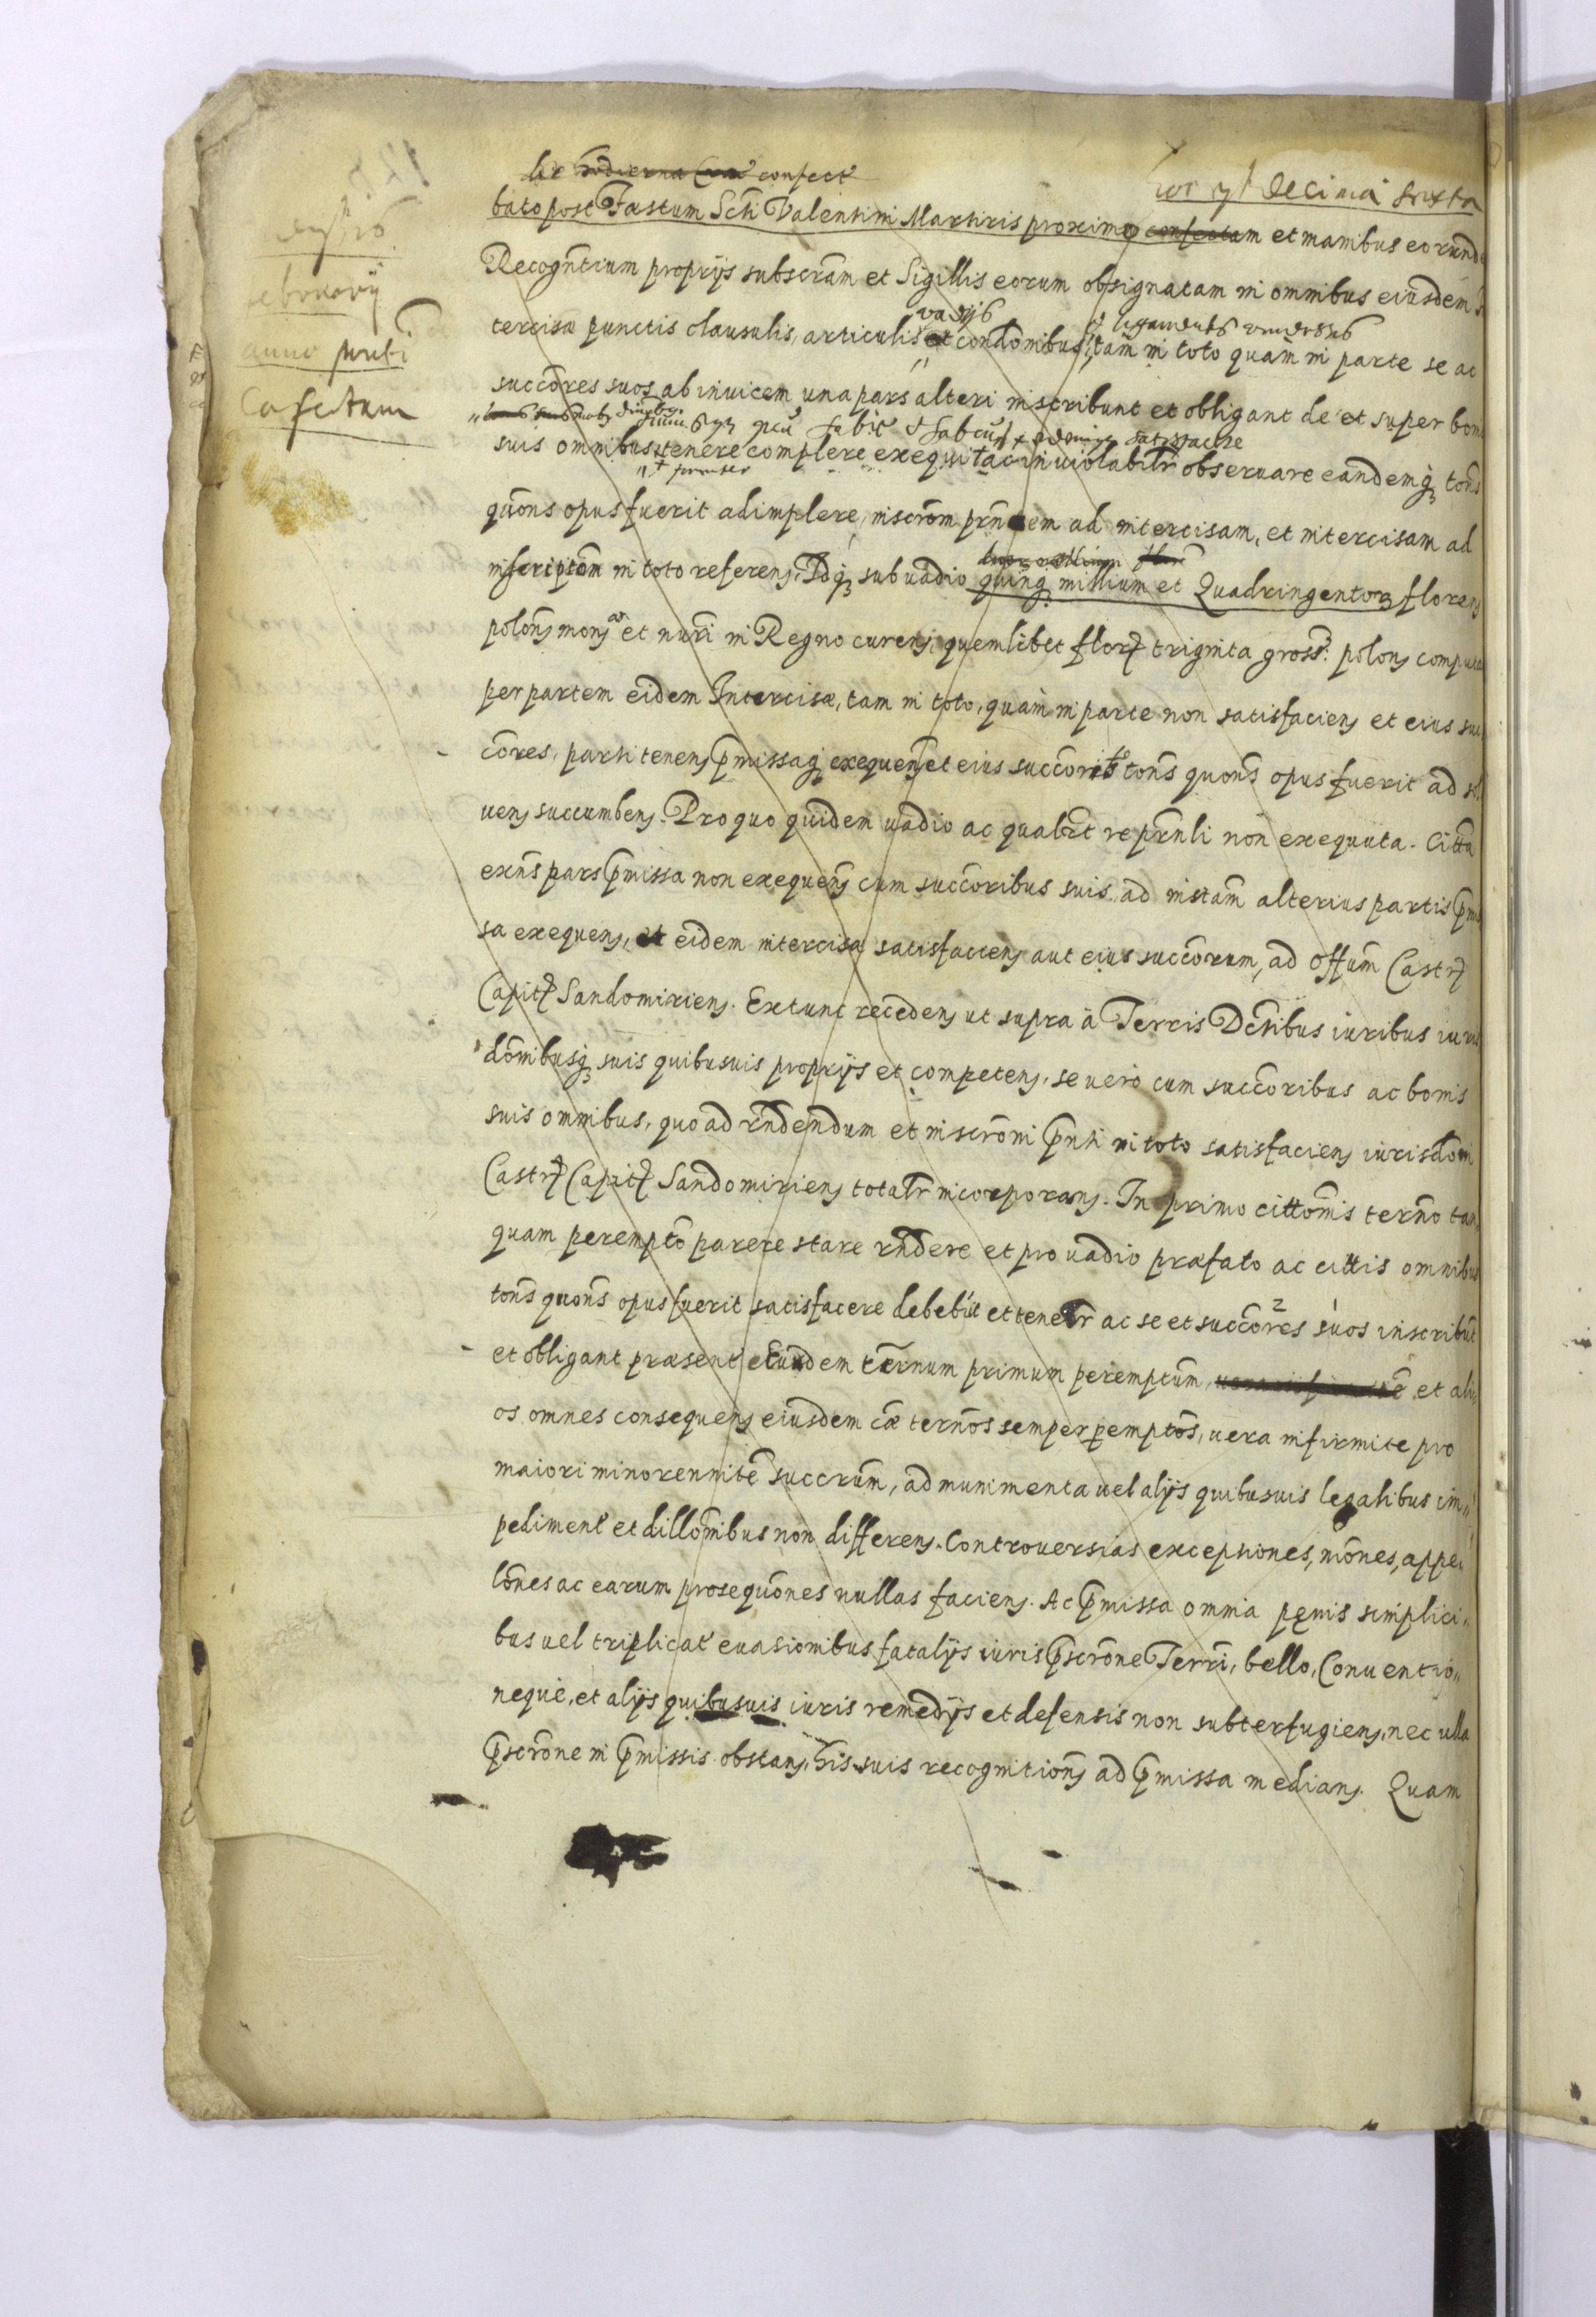 die hodierna confect
decima sexta
bato post Fæstum Scti Valentini Martiris proximo confectam et manibus eorund
Februarij
anno pnti
Cofectum
Recogntium proprijs subscram et Sigillis eorum obsignatam in omnibus eiusdem
vadijs
ligamentis
tercisæ punctis clausulis, articulis et condonibus, tam in toto quam in parte se ac
succores suos ab invicem una pars alteri inscribunt et obligant de et super bon
satisfacere
suis omnibus tenere complere exequi ac inviolabilr observare eandemq tons
quons opus fuerit adimplere, inscrom prntem ad intercisam, et intercisam ad
inscriptom in toto referens. Idq sub vadio quinq millium et Quadringentor florens
polons mons et nuri in Regno curens, quemlibet flor triginta gross: polons computa
per partem eidem Intercisæ, tam in toto, quam in parte non satisfaciens et eius suc
cores, parti tenens pmissaq exequens et eius succorib tons quons opus fuerit ad sol
vens succumbens. Pro quo quidem vadio ac qualbt reprnli non exequuta. Citta
exns pars pmissa non exequens cum succoribus suis, ad instam alterius partis pmis
sa exequens, et eidem intercisæ satisfaciens aut eius succorum, ad Offum Castr
Capit Sandomiriens. Extunc recedens ut supra à Terris Dctibus iuribus iuris
donibusq suis quibusvis proprijs et competens, se vero cum succoribus ac bonis
suis omnibus, quo ad rndendum et inscroni pnti in toto satisfaciens iurisdoni
Castr Capit Sandomiriens totalr incorporans. In primo cittonis terno tan
quam perempto parere stare rndere et pro vadio præfato ac cittis omnibus
tons quons opus fuerit satisfacere debebut et tenebr ac se et succores 2 suos 1 inscribut
et obligant præsent Eundem ternum primum peremptum, et ali
os omnes consequens eiusdem cæ ternos semper pemptos, vera infirmite pro
maiori minorennite succrum, ad munimenta vel alijs quibusvis legalibus im
pediment et dillonibus non differens. Controversias exceptiones, mones, appel
lones ac earum prosequones nullas faciens. Ac pmissa omnia pęnis simplici
bus vel triplicat evasionibus fatalijs iuris pscrone Terri, bello, Conventio
neque, et alijs quibusvis iuris remedijs et defensis non subterfugiens, nec ulla
pscrone in pmissis obstans, his suis recognitions ad pmissa medians. Quam